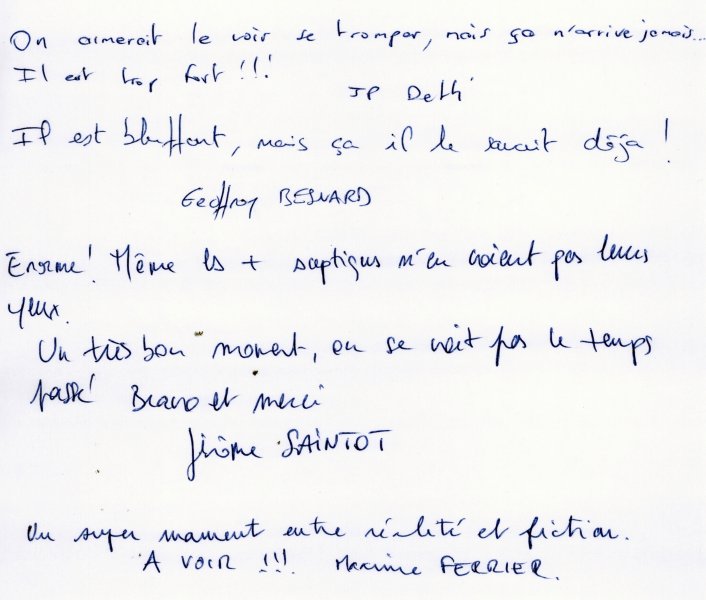 On aimerait le voir se tromper, mais ça n'arrive jamais...
Il est trop fort !!!
JP Dethi
Il est bluffant, mais ça il le savait déjà !
Geoffroy BESNARD
Enorme! Même les + sceptiques n'en croient pas leurs
yeux.
Un très bon moment, on se voit pas le temps
passé! Bravo et merci
Jérôme SAINTOT
Un super moment entre réalité et fiction.
A VOIR !!! Maxime FERRIER.